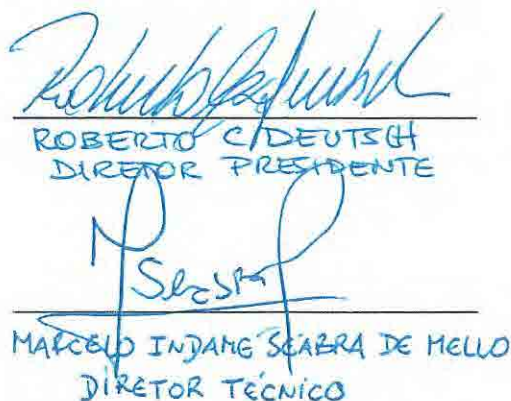 ROBERTO C. DEUTSCH
DIRETOR PRESIDENTE
MARCELO INDAME SEABRA DE MELLO
DIRETOR TÉCNICO